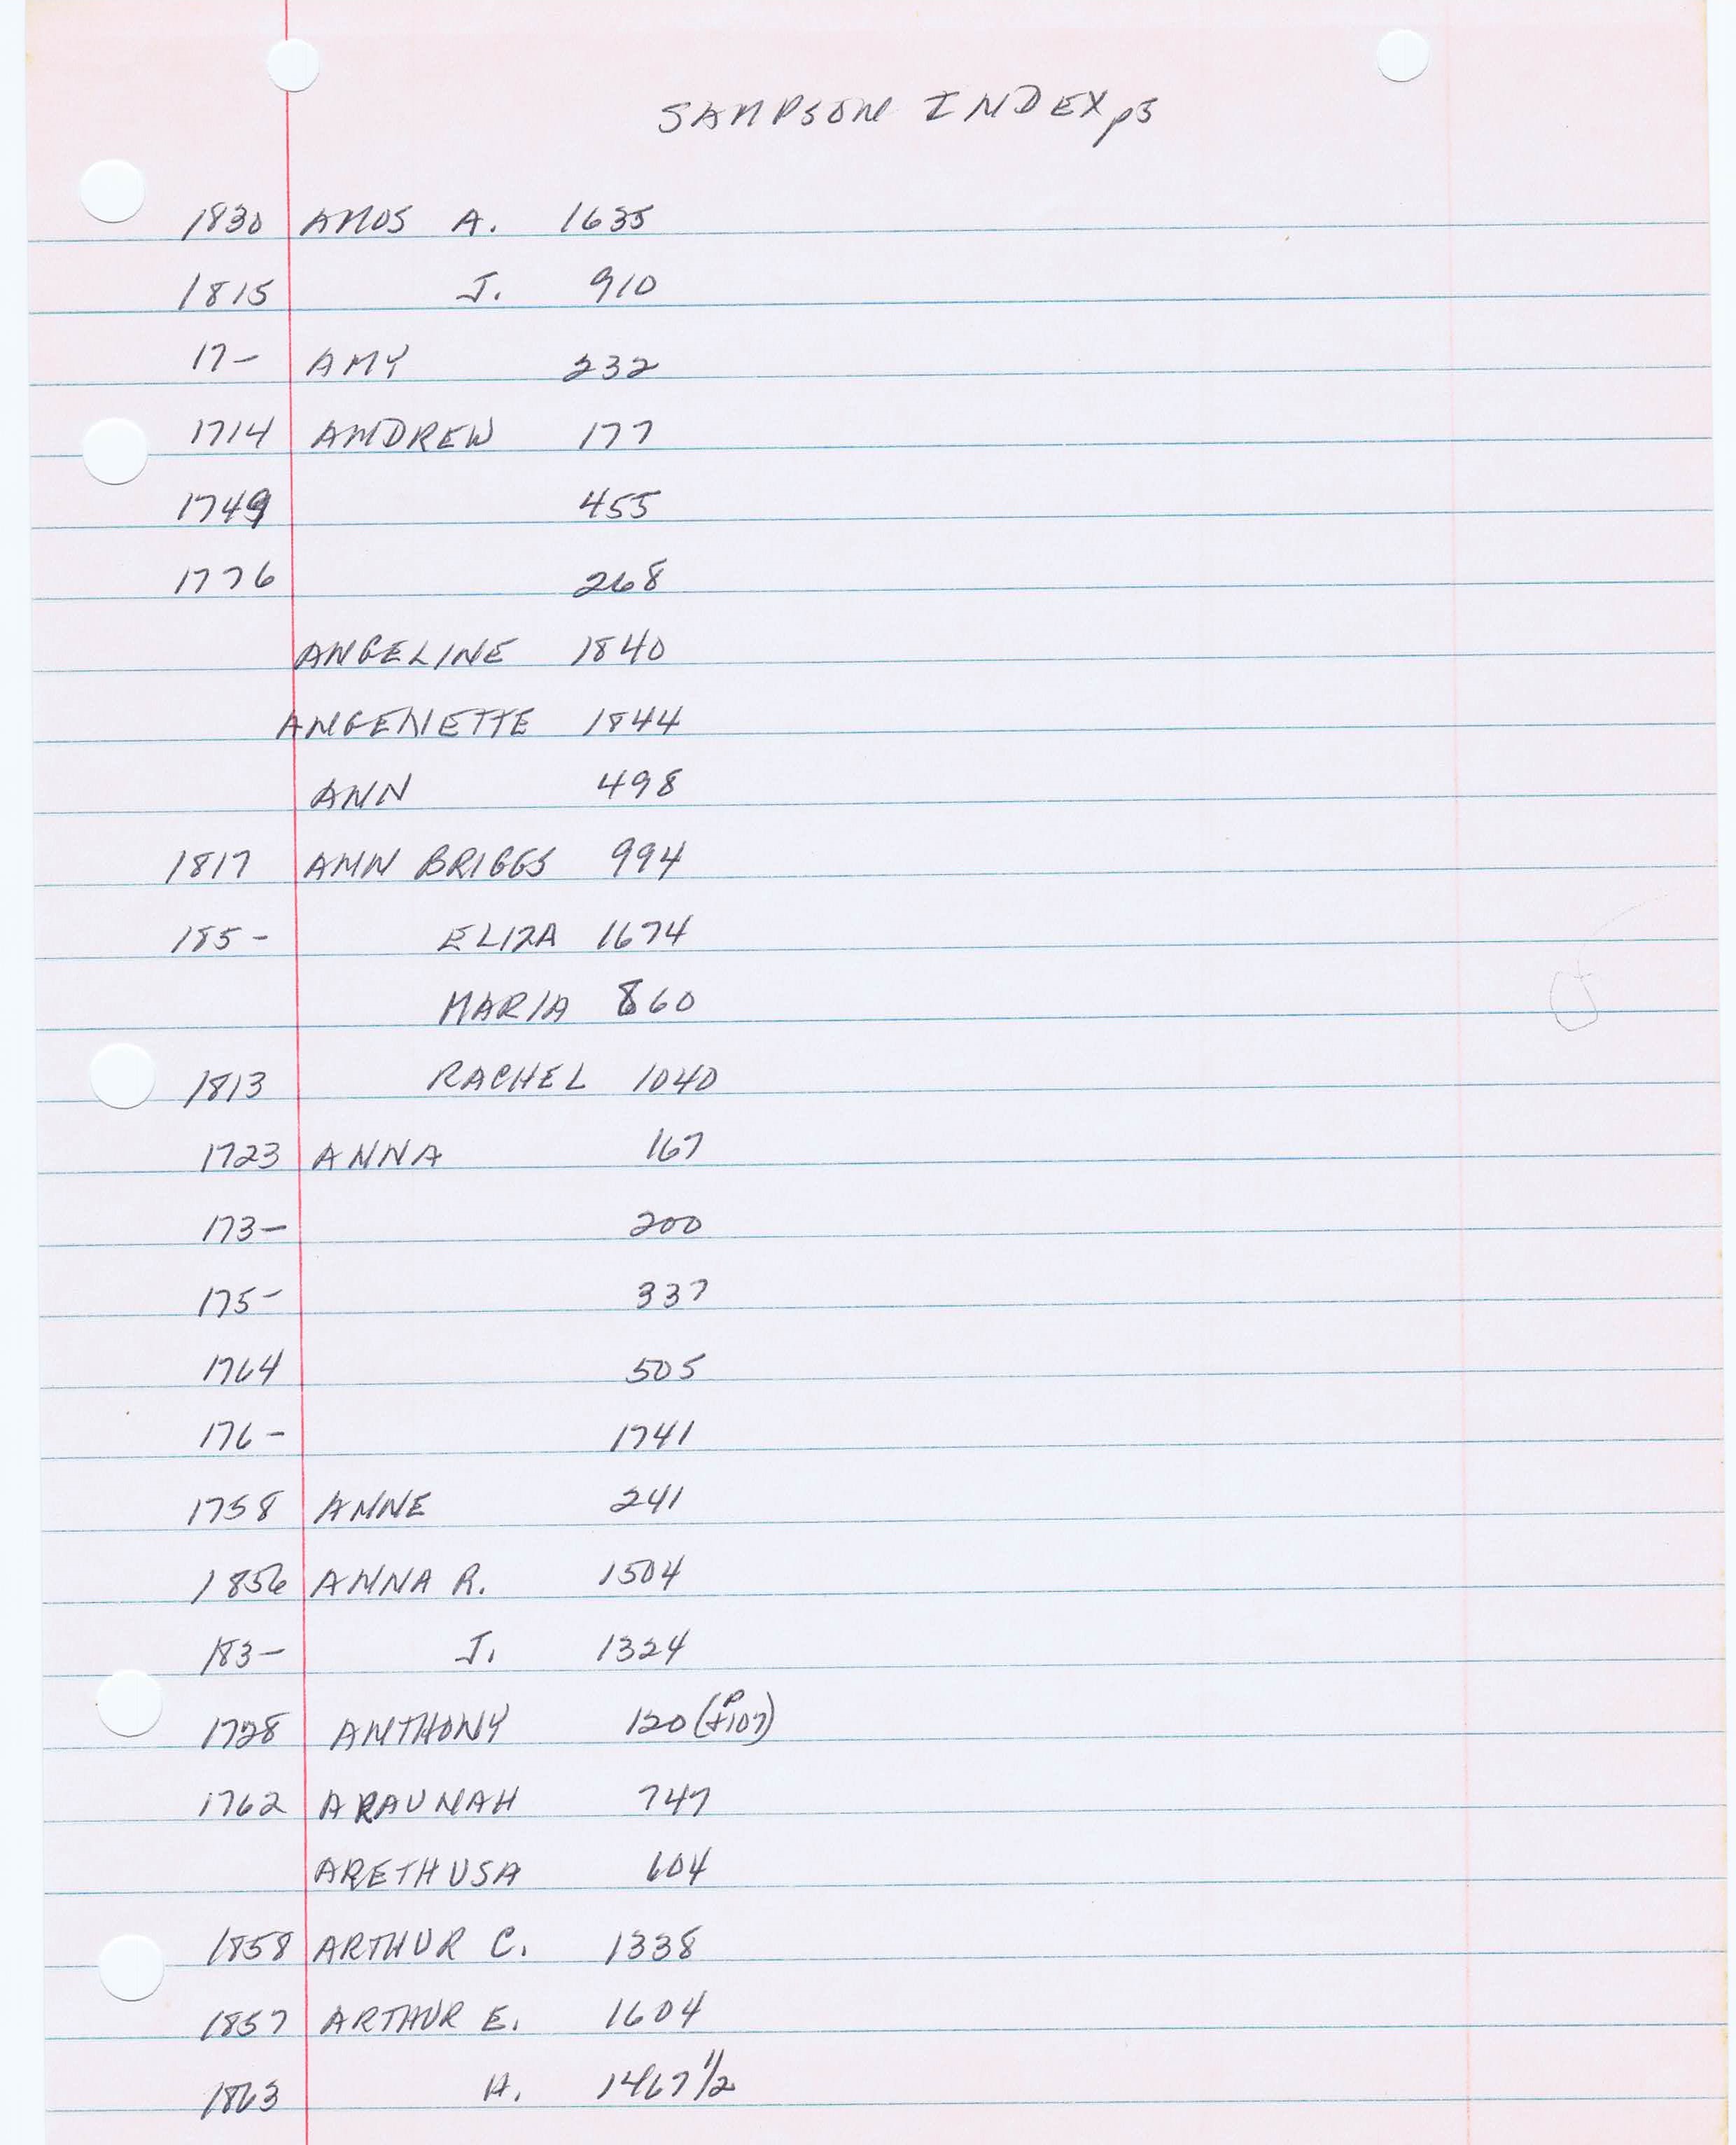 SAMPSON INDEX p5
1830 AMOS A. 1635
1815 J. 910
17- AMY 232
1714 ANDREW 177
1749 455
1776 268
ANGELINE 1840
ANGENETTE 1844
ANN 498
1817 ANN BRIGGS 994
185- ELIZA 1674
MARIA 860
1813 RACHEL 1040
1723 ANNA 167
173- 200
175- 337
1764 505
176- 1741
1758 ANNE 241
1856 ANNA R. 1504
183- J. 1324
1728 ANTHONY 120 (P +107)
1762 ARAUNAH 747
ARETHUSA 604
1858 ARTHUR C. 1338
1857 ARTHUR E. 1604
1863 H. 1467 1/2